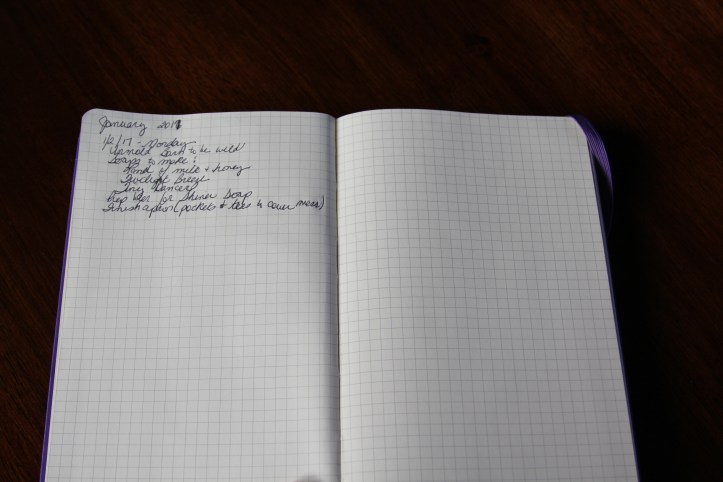 January 201
1/2/17 - Monday
unmold Dare to be wild
Soaps to make:
Land of milk + honey
Twilight Breeze
Tiny Dancer
Prep Beer for Shiner Soap
Finish apron (pockets + to cover mess)